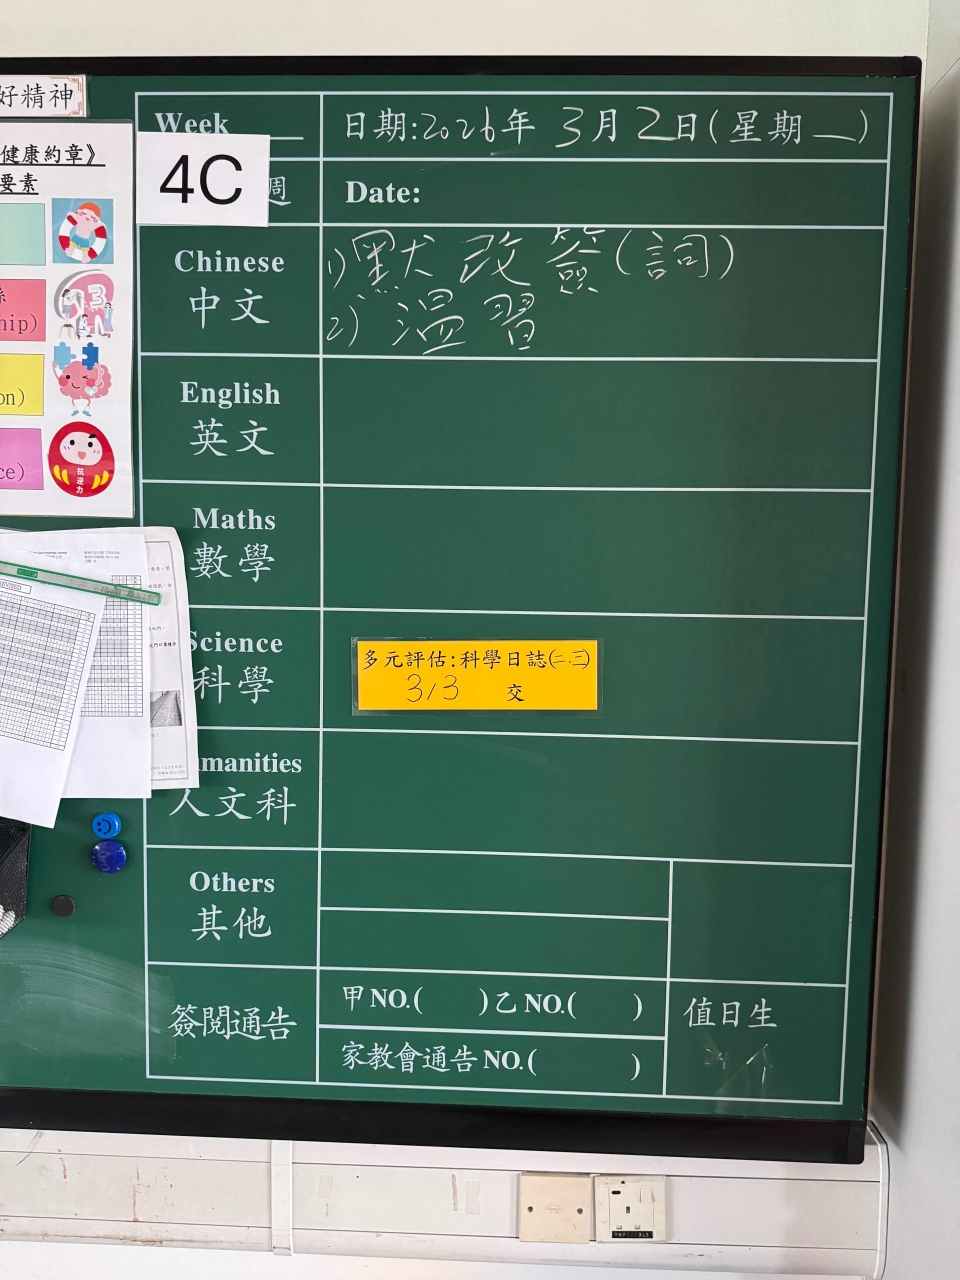 好精神
健康約章》
要素
hip)
on)
ce)
抗逆力
REVISED
4C
Week
週
日期:2026年 3月2日(星期一)
Date:
Chinese
中文
1) 默改簽(詞)
2) 溫習
English
英文
Maths
數學
Science
科學
多元評估:科學日誌(二、三)
3/3 交
manities
人文科
Others
其他
簽閱通告
甲NO.( )乙NO.( )
家教會通告NO.( )
值日生